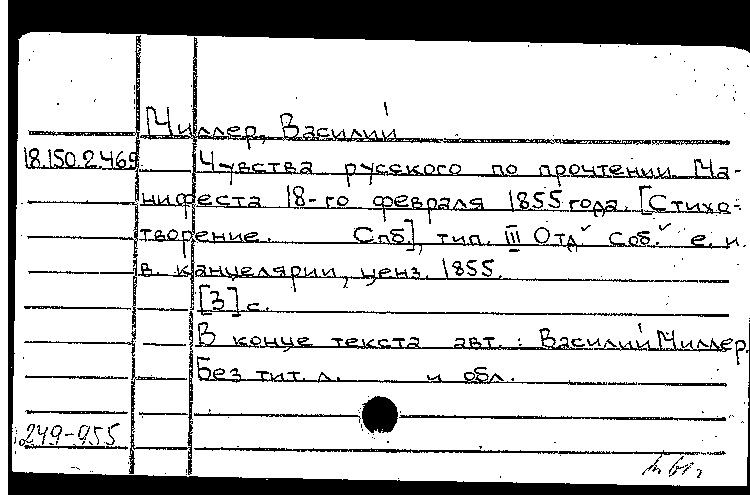 Миллер, Василий
18.150.2.469 Чувства русского по прочтении Ма-
нифеста 18-го февраля 1855 года. [Стихо-
творение. Спб], тип. III Отд. Соб. е. и.
в. канцелярии, ценз. 1855.
[3] с.
В конце текста авт.: Василий Миллер.
Без тит. л. и обл.
249-955